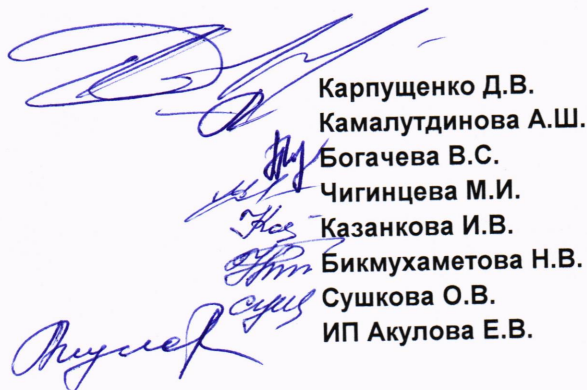 Карпущенко Д.В.
Камалутдинова А.Ш.
Богачева В.С.
Чигинцева М.И.
Казанкова И.В.
Бикмухаметова Н.В.
Сушкова О.В.
ИП Акулова Е.В.